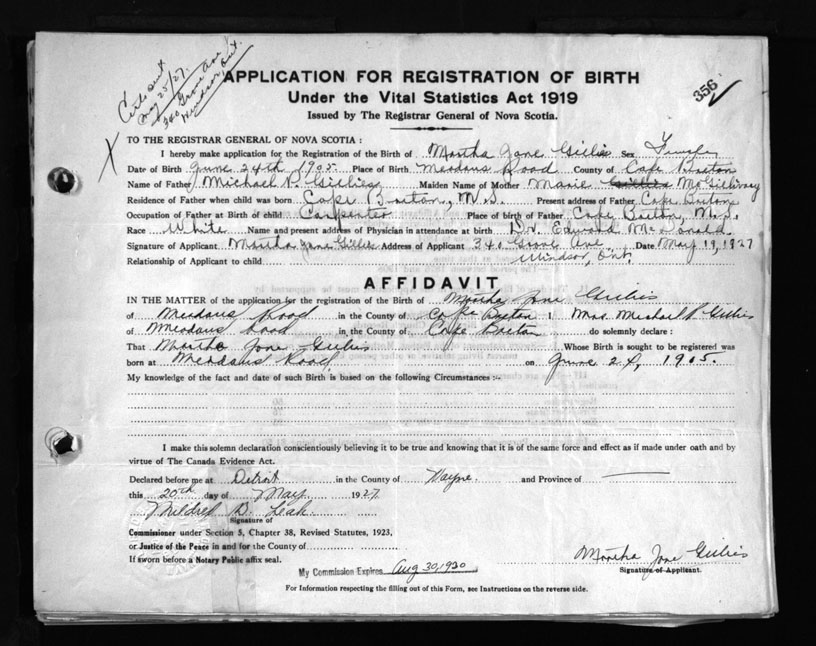 Certs sent
May 25/27.
340 Grove Ave
Windsor Ont.
356
APPLICATION FOR REGISTRATION OF BIRTH
Under the Vital Statistics Act 1919
Issued by The Registrar General of Nova Scotia.
TO THE REGISTRAR GENERAL OF NOVA SCOTIA :
I hereby make application for the Registration of the Birth of Martha Jane Gillis Sex
Date of Birth June 24th 1905 Place of Birth Meadows Road County of Cape Breton
Name of Father Michael P. Gillies Maiden Name of Mother Marie Gillies McGillivray
Residence of Father when child was born Cape Breton, N.S. Present address of Father Cape Breton
Occupation of Father at Birth of child Carpenter Place of birth of Father Cape Breton, N.S.
Race White Name and present address of Physician in attendance at birth Dr. Edward McDonald
Signature of Applicant Martha Jane Gillies Address of Applicant 340 Grove Ave Date May 19, 1927
Relationship of Applicant to child Windsor, Ont.
AFFIDAVIT
IN THE MATTER of the application for the registration of the Birth of Martha Jane Gillies
of Meadows Road in the County of Cape Breton I Mrs. Michael P Gillies
of Meadows Road in the County of Cape Breton do solemnly declare :
That Martha Jane Gillis Whose Birth is sought to be registered was
born at Meadows Road on June 24, 1905.
My knowledge of the fact and date of such Birth is based on the following Circumstances :-
I make this solemn declaration conscientiously believing it to be true and knowing that it is of the same force and effect as if made under oath and by
virtue of The Canada Evidence Act.
Declared before me at Detroit in the County of Wayne and Province of
this 20th day of May 1927
Mildred D. Leah
Signature of
Commissioner under Section 5, Chapter 38, Revised Statutes, 1923,
or Justice of the Peace in and for the County of
If sworn before a Notary Public affix seal.
Martha Jane Gillies
Signature of Applicant.
My Commission Expires Aug 30, 1930
For Information respecting the filling out of this Form, see Instructions on the reverse side.